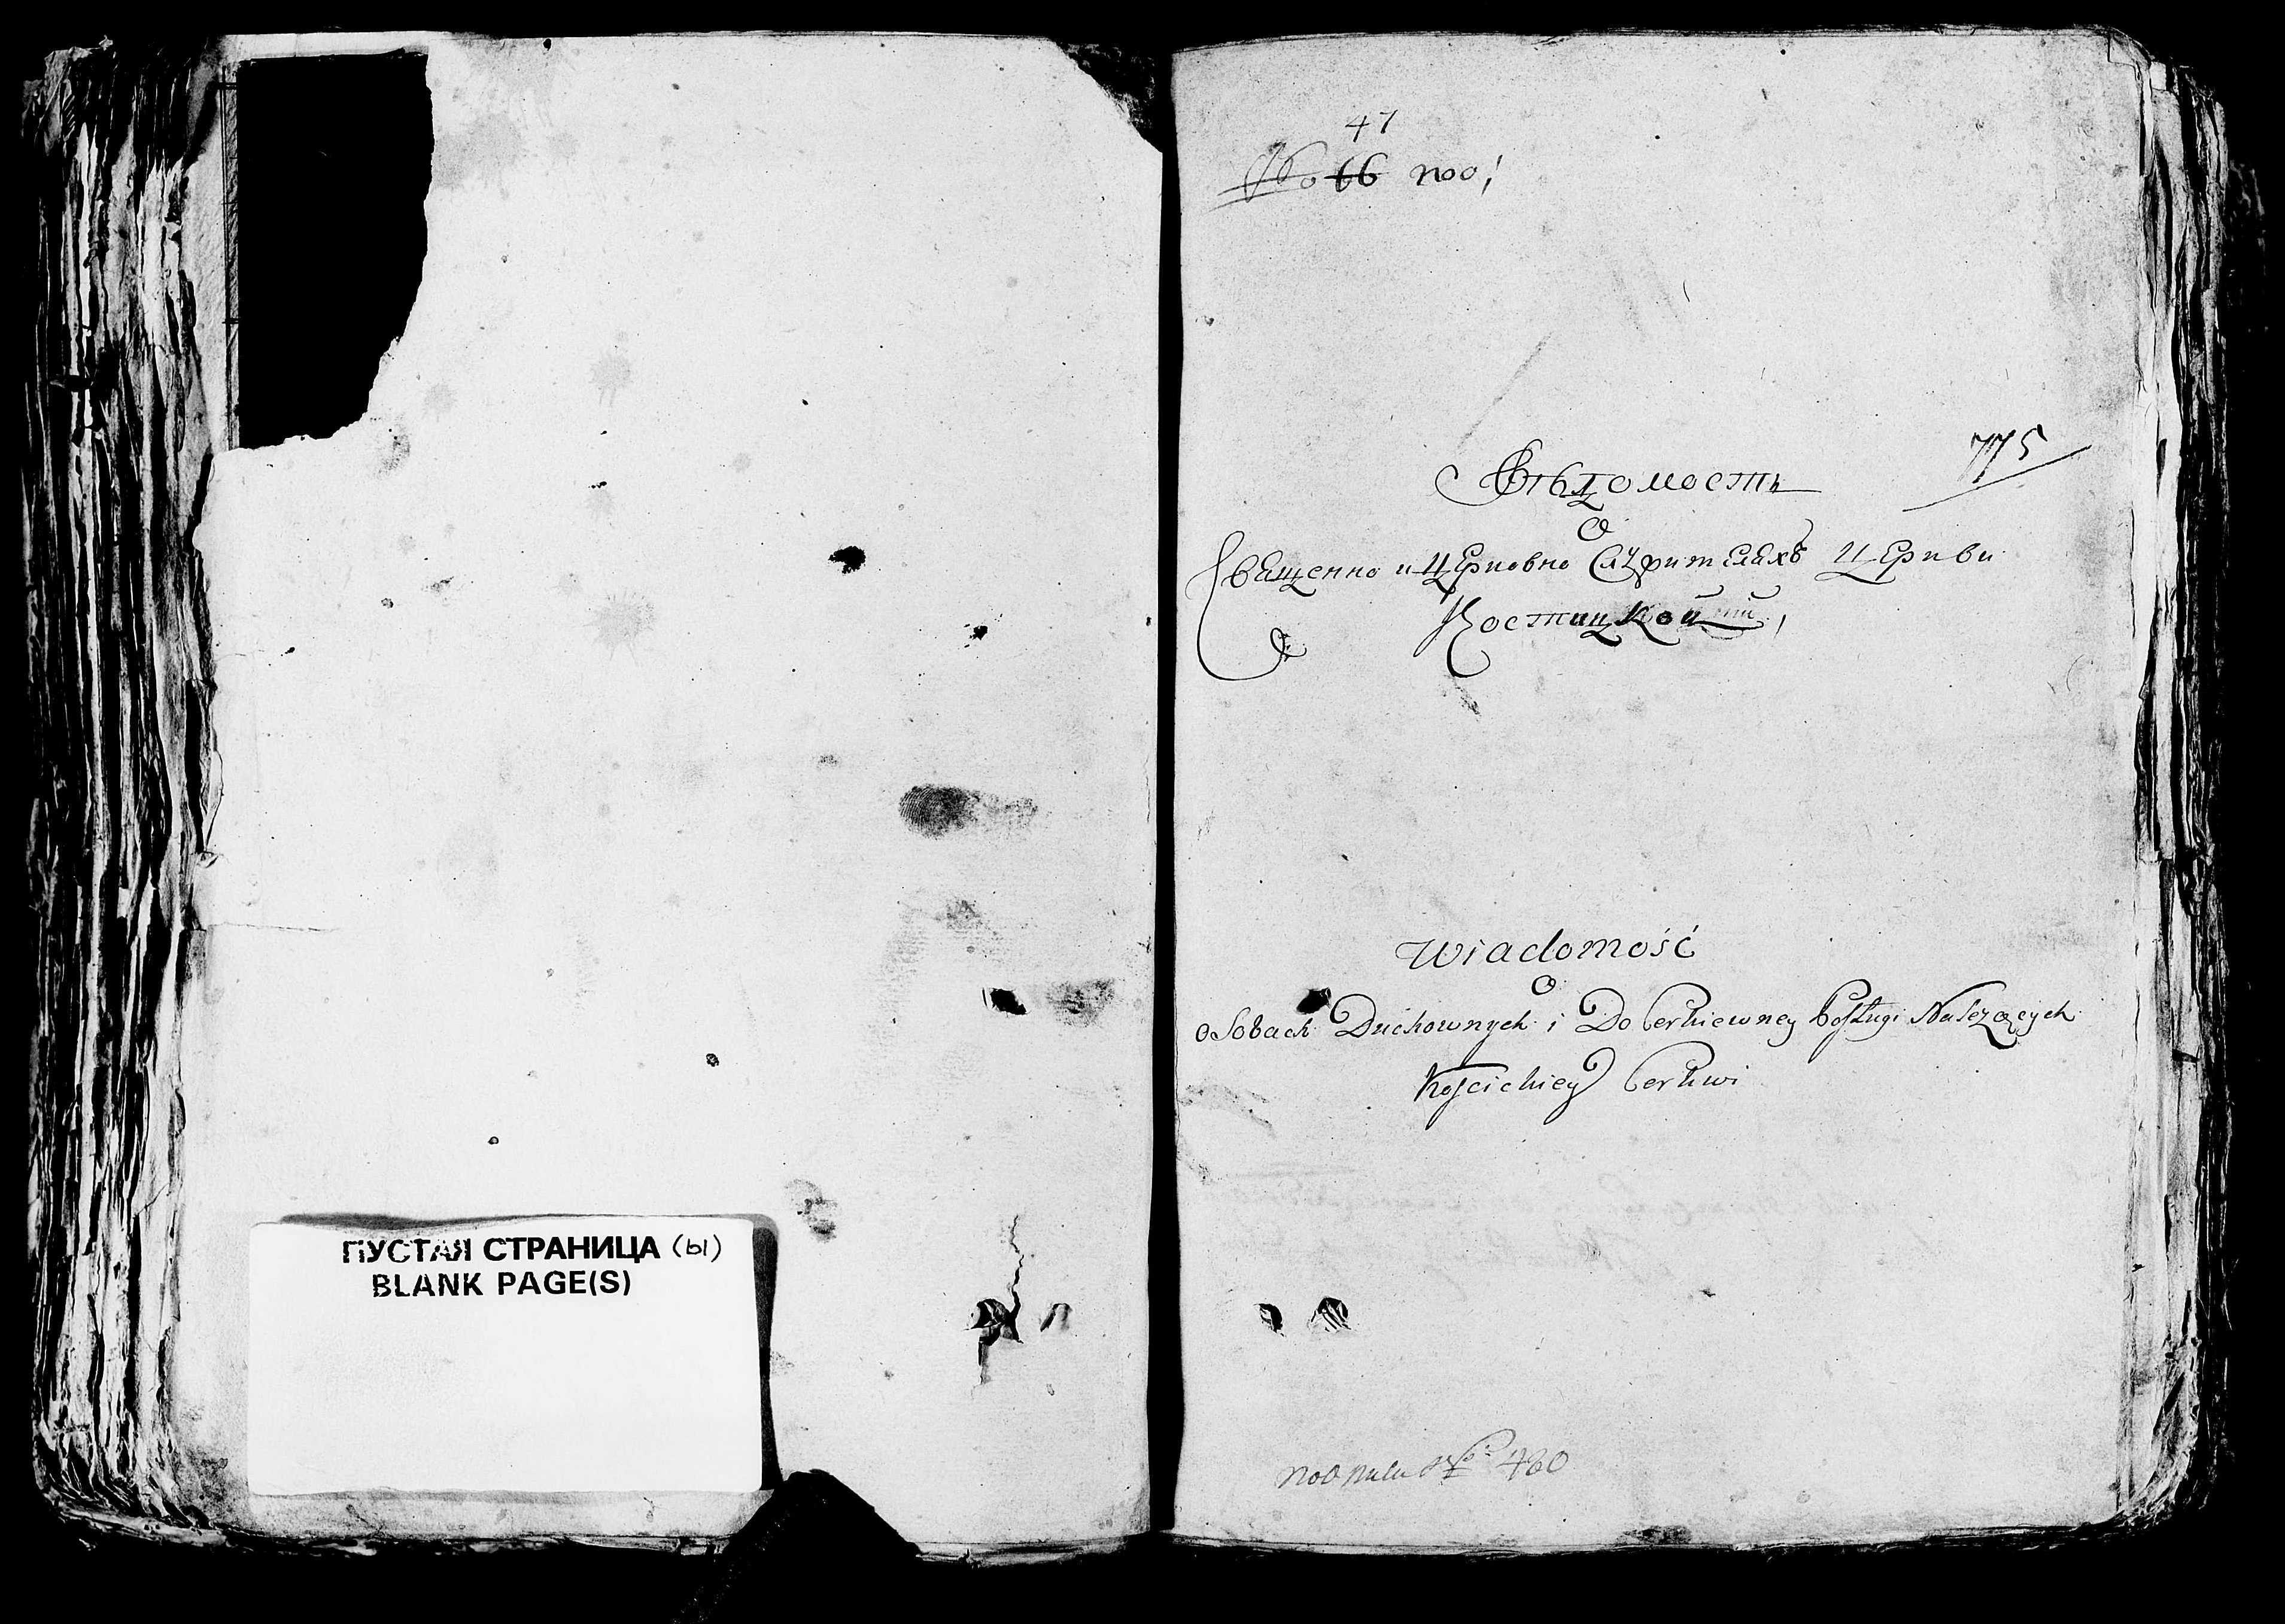 ПУСТАЯ СТРАНИЦА (ы)
BLANK PAGE(S)
47
No 66 по;
775
Вѣдомость
О
Священно и церковно служителахъ церкви
Костицкой
Wiadomość
O
oSobach Duchownych i Do Cerkiewney Posługi Należących
Kościckiey Cerkwi
No 460